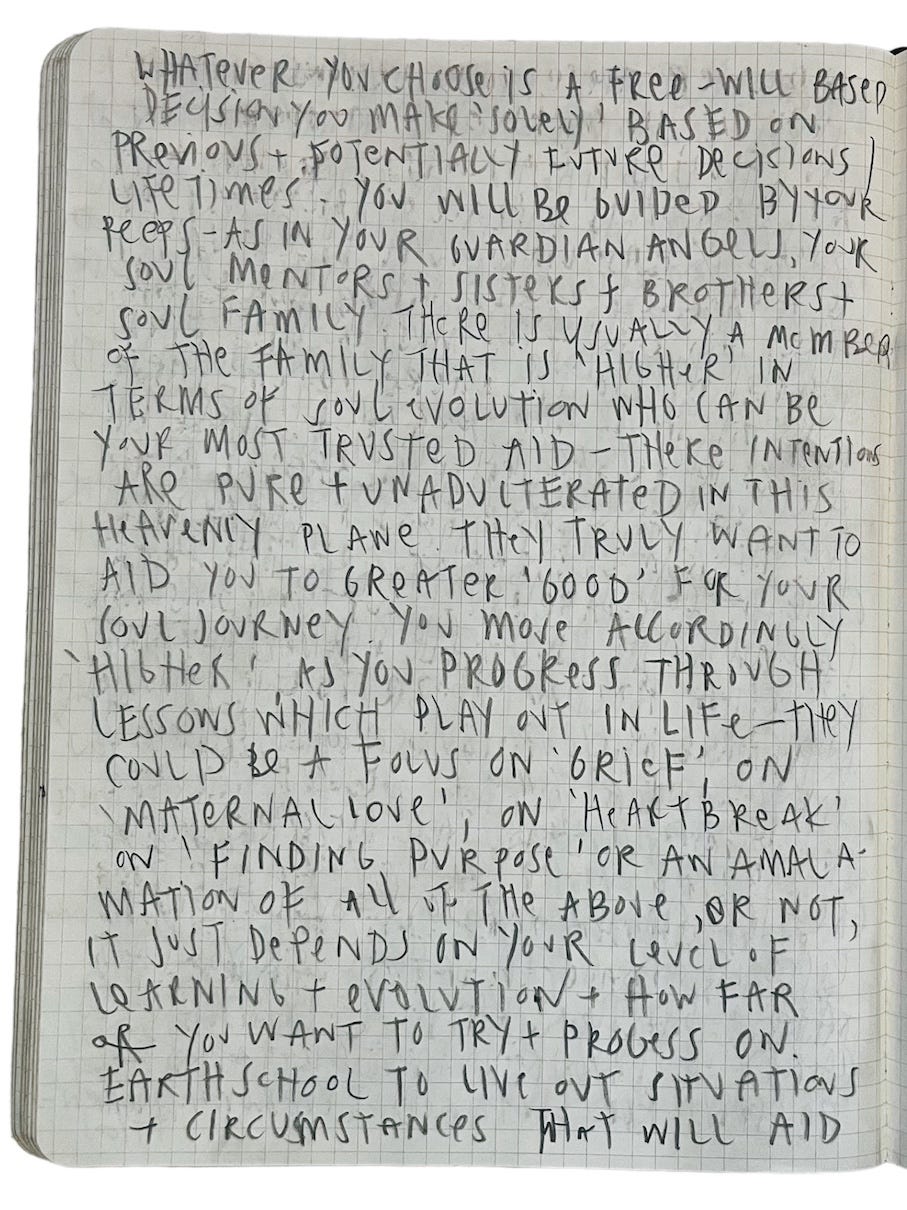 WHATEVER YOU CHOOSE IS A FREE-WILL BASED
DECISION YOU MAKE 'SOLELY' BASED ON
PREVIOUS + POTENTIALLY FUTURE DECISIONS/
LIFETIMES. YOU WILL BE GUIDED BY YOUR
PEEPS-AS IN YOUR GUARDIAN ANGELS, YOUR
SOUL MENTORS + SISTERS + BROTHERS +
SOUL FAMILY. THERE IS USUALLY A MEMBER
OF THE FAMILY THAT IS 'HIGHER' IN
TERMS OF SOUL EVOLUTION WHO CAN BE
YOUR MOST TRUSTED AID - THERE INTENTIONS
ARE PURE + UNADULTERATED IN THIS
HEAVENLY PLANE. THEY TRULY WANT TO
AID YOU TO GREATER 'GOOD' FOR YOUR
SOUL JOURNEY. YOU MOVE ACCORDINGLY
'HIGHER', AS YOU PROGRESS THROUGH
LESSONS WHICH PLAY OUT IN LIFE-THEY
COULD BE A FOCUS ON 'GRIEF', ON
'MATERNAL LOVE', ON 'HEARTBREAK'
ON 'FINDING PURPOSE' OR AN AMALA-
MATION OF ALL OF THE ABOVE, OR NOT,
IT JUST DEPENDS ON YOUR LEVEL OF
LEARNING + EVOLUTION + HOW FAR
YOU WANT TO TRY + PROGESS ON.
EARTH SCHOOL TO LIVE OUT SITUATIONS
+ CIRCUMSTANCES THAT WILL AID